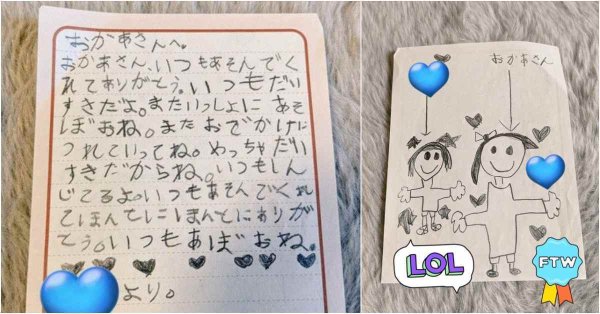 おかあさんへ。
おかあさん、いつもあそんでく
れてありがとう。いつもだい
すきだよ。またいっしょにあそ
ぼおね。またおでかけに
つれていってね。めっちゃだい
すきだからね。いつもしん
じてるよ。いつもあそんでくれ
てほんとにほんとにありが
とう。いつもあぼおね。
より。
おかあさん
LOL
FTW